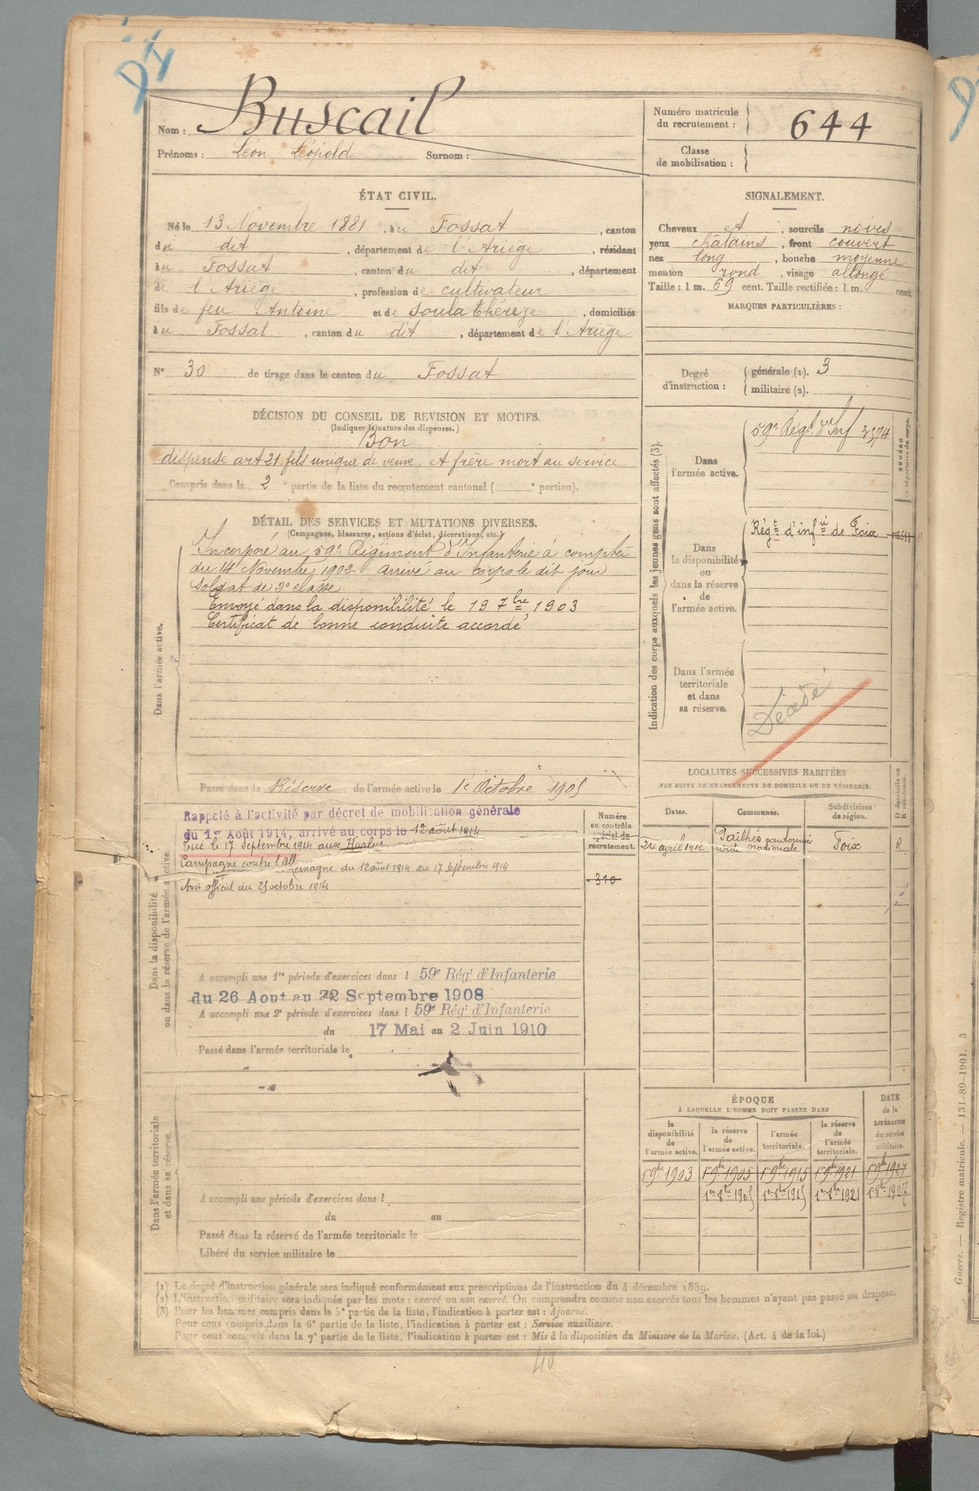 Nom : Buscail
Prénoms : Léon Léopold Surnom :
Numéro matricule du recrutement : 644
Classe de mobilisation :
ÉTAT CIVIL.
Né le 13 Novembre 1881, au Fossat, canton
du dit, département de l'Ariège, résidant
au Fossat, canton du dit, département
de l'Ariège, profession de cultivateur
fils de feu Antoine et de Soula Thérèze, domiciliés
au Fossat, canton du dit, département de l'Ariège
N° 30 de tirage dans le canton du Fossat
SIGNALEMENT.
Cheveux et, sourcils noirs
yeux châtains, front couvert
nez long, bouche moyenne
menton rond, visage allongé
Taille : 1 m. 69 cent. Taille rectifiée : 1 m. cent.
MARQUES PARTICULIÈRES :
Degré d'instruction : générale (1). 3
militaire (2).
DÉCISION DU CONSEIL DE REVISION ET MOTIFS.
(Indiquer la nature des dispenses.)
Bon
dispensé art 21 fils unique de veuve, et frère mort au service
Compris dans la 2e partie de la liste du recrutement cantonal ( e portion).
DÉTAIL DES SERVICES ET MUTATIONS DIVERSES.
(Campagnes, blessures, actions d'éclat, décorations, etc.)
Dans l'armée active.
Incorporé au 59e Régiment d'Infanterie à compter
du 14 Novembre 1902. Arrivé au corps le dit jour
Soldat de 2e classe.
Envoyé dans la disponibilité le 19 7bre 1903
Certificat de bonne conduite accordé
Passé dans la Réserve de l'armée active le 1e Octobre 1905
Dans la disponibilité ou dans la réserve de l'armée active.
Rappelé à l'activité par décret de mobilisation générale
du 1er Août 1914, arrivé au corps le 12 août 1914
Tué le 17 Septembre 1914 aux Hurlus
Campagne contre l'Allemagne du 12 août 1914 au 17 Septembre 1914
Avis officiel du 21 octobre 1914
A accompli une 1re période d'exercices dans l 59e Rég' d'Infanterie
du 26 Aout au 22 Septembre 1908
A accompli une 2e période d'exercices dans l 59e Rég' d'Infanterie
du 17 Mai au 2 Juin 1910
Passé dans l'armée territoriale le
Dans l'armée territoriale et dans sa réserve.
A accompli une période d'exercices dans l
du au
Passé dans la réserve de l'armée territoriale le
Libéré du service militaire le
Numéro au contrôle spécial du recrutement
310
Indication des corps auxquels les jeunes gens sont affectés (3).
Dans l'armée active.
59e Régt d'Inf 3574
Dans la disponibilité ou dans la réserve de l'armée active.
Régt d'infrie de Foix
Dans l'armée territoriale et dans sa réserve.
Décédé
LOCALITÉS SUCCESSIVES HABITÉES
PAR SUITE DE CHANGEMENTS DE DOMICILE OU DE RÉSIDENCE.
Dates. Communes. Subdivisions de région.
Pailhès cantonnier
Foix R
ÉPOQUE
À LAQUELLE L'HOMME DOIT PASSER DANS
la disponibilité de l'armée active. la réserve de l'armée active. l'armée territoriale. la réserve de l'armée territoriale.
DATE de la LIBÉRATION du service militaire.
(1) Le degré d'instruction générale sera indiqué conformément aux prescriptions de l'instruction du 4 décembre 1889.
(2) L'instruction militaire sera indiquée par les mots : exercé ou non exercé. On comprendra comme non exercés tous les hommes n'ayant pas passé au drapeau.
(3) Pour les hommes compris dans la 5e partie de la liste, l'indication à porter est : Ajourné.
Pour ceux compris dans la 6e partie de la liste, l'indication à porter est : Service auxiliaire.
Pour ceux compris dans la 7e partie de la liste, l'indication à porter est : Mis à la disposition du Ministre de la Marine. (Art. 4 de la loi.)
Guerre. — Registre matricule. — 131-89-1901. 3